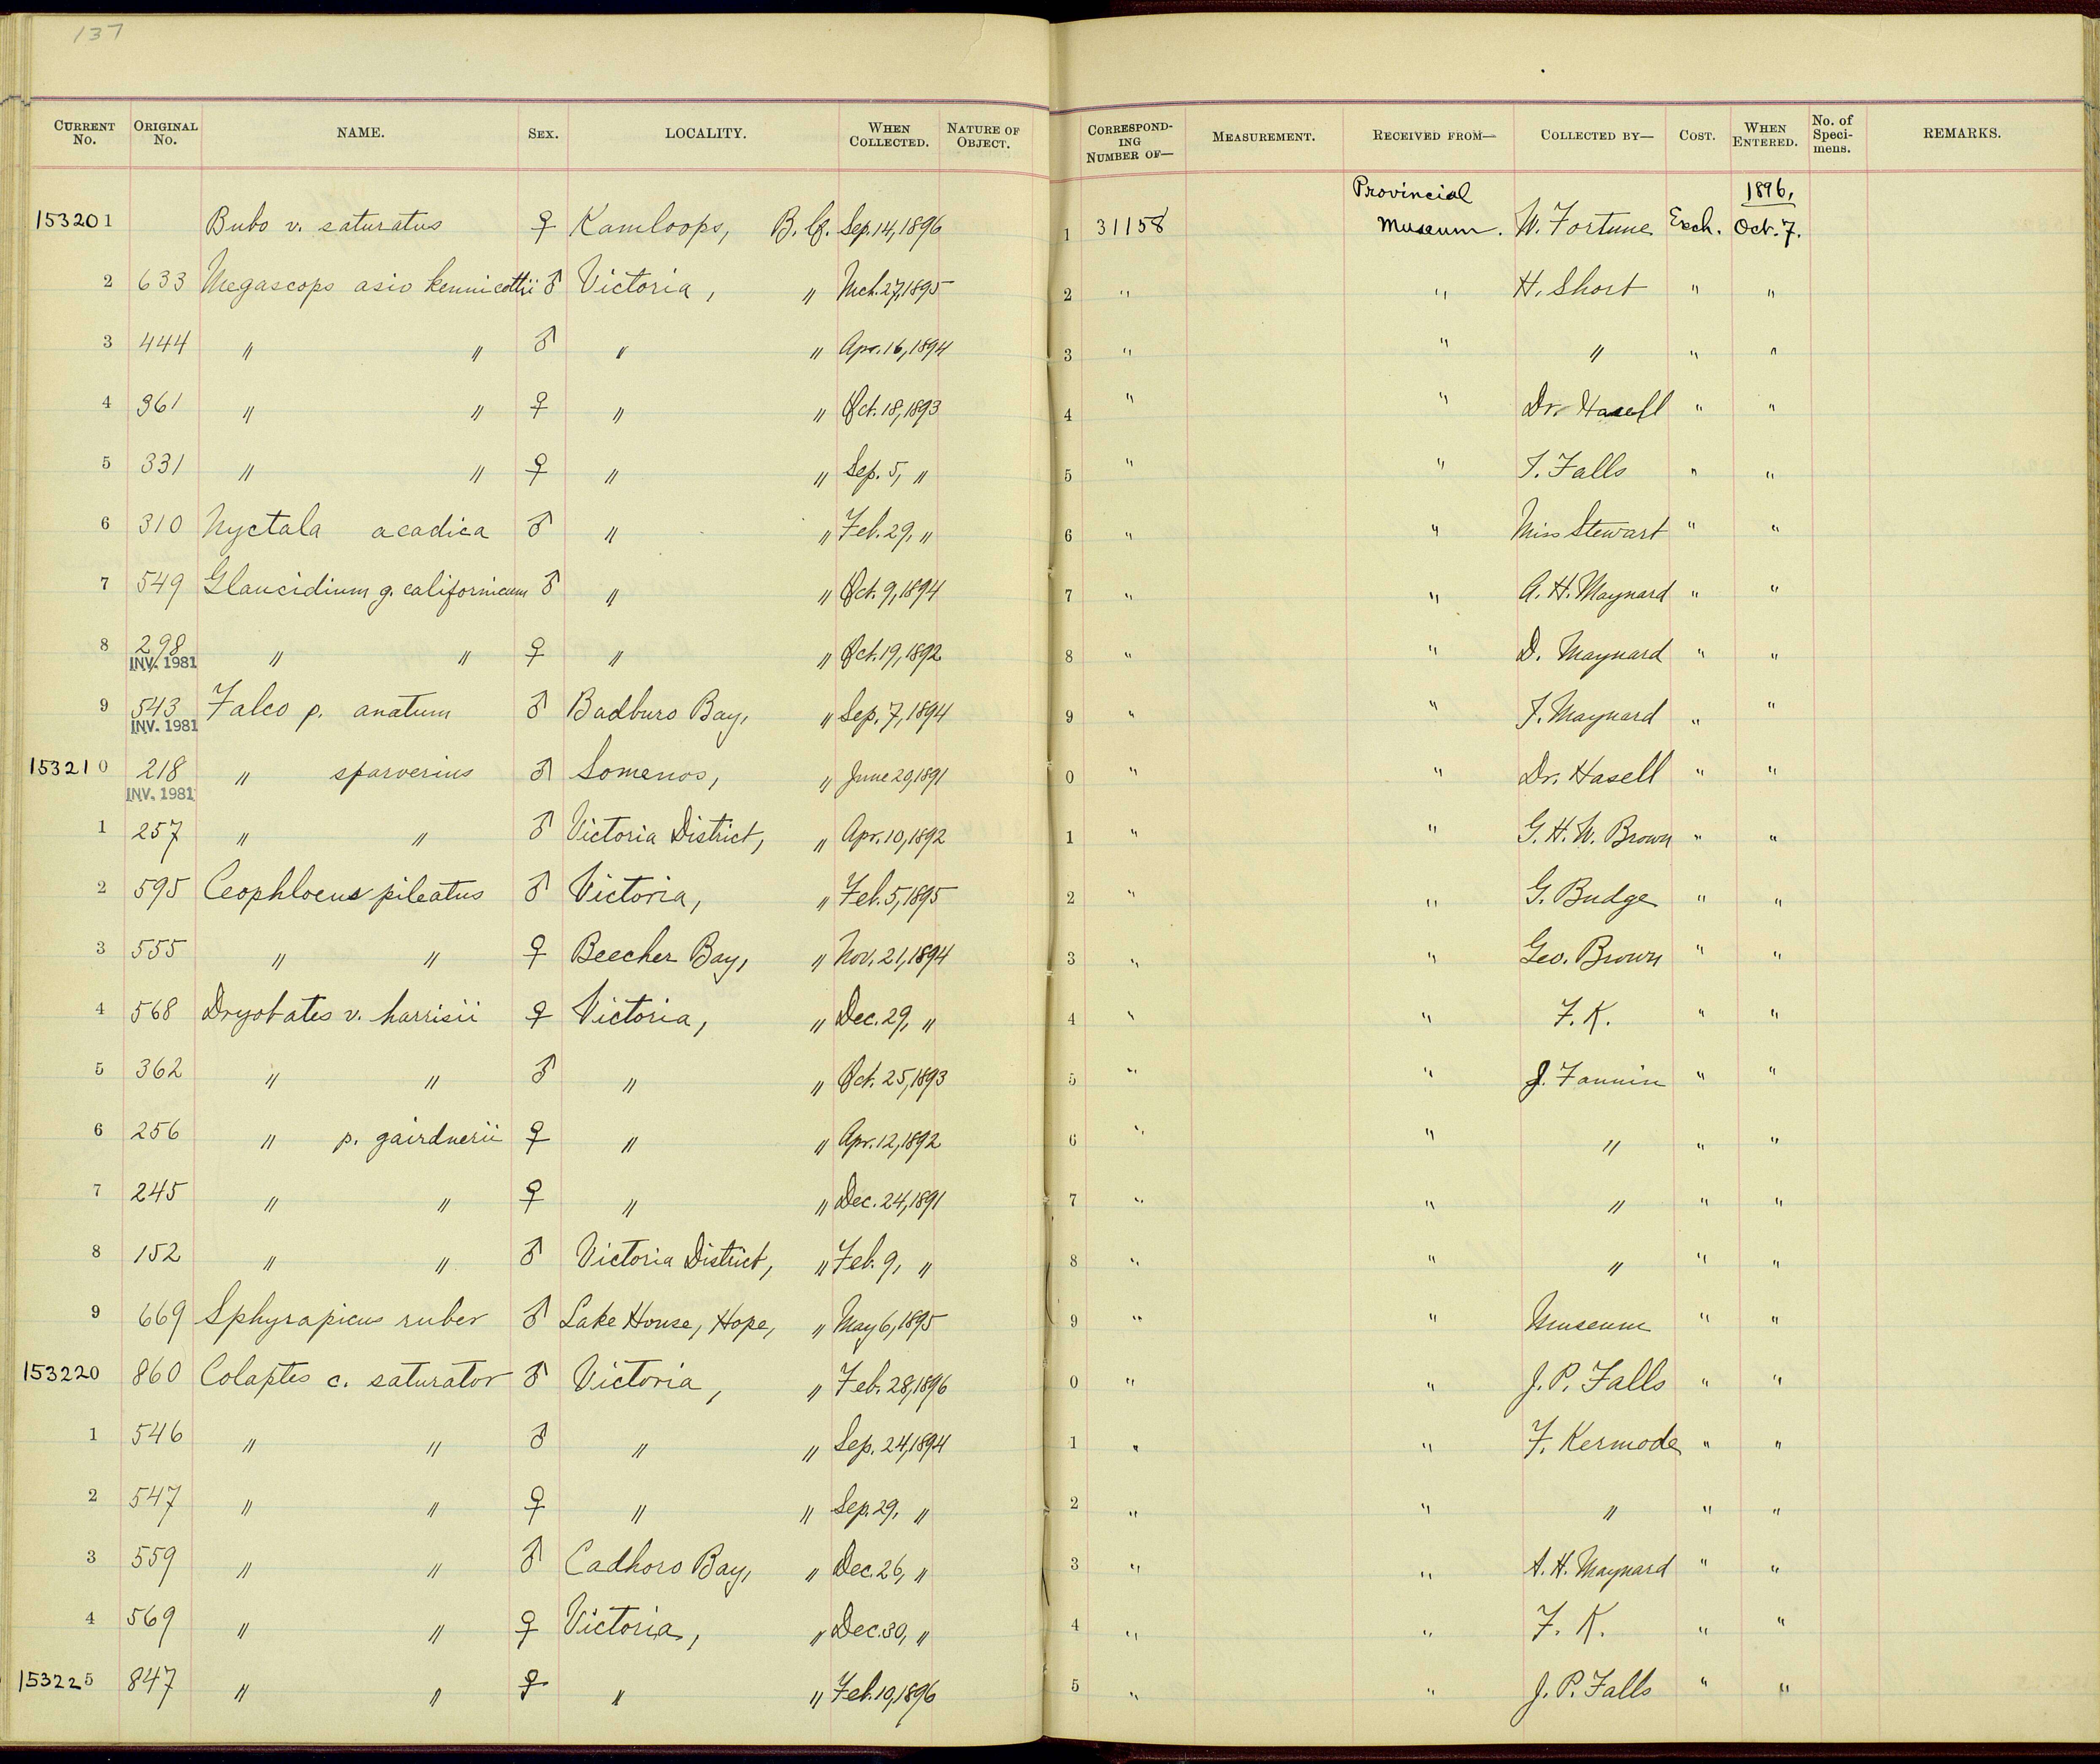 137
CURRENT No. ORIGINAL No. NAME. SEX. LOCALITY. WHEN COLLECTED. NATURE OF OBJECT. CORRESPONDING NUMBER OF— MEASUREMENT. RECEIVED FROM— COLLECTED BY— COST. WHEN ENTERED. No. of Specimens. REMARKS.
Provincial 1896,
153201 Bubo v. saturatus ♀ Kamloops, B. C. Sep. 14, 1896 1 31158 Museum. W. Fortune Exch. Oct. 7.
2 633 Megascops asio kennicottii ♂ Victoria, " Mch. 27, 1895 2 " " H. Short " "
3 444 " " ♂ " " Apr. 16, 1894 3 " " " " "
4 361 " " ♀ " " Oct. 18, 1893 4 " " Dr. Hasell " "
5 331 " " ♀ " " Sep. 5, " 5 " " J. Falls " "
6 310 Nyctala acadica ♂ " " Feb. 29, " 6 " " Miss Stewart " "
7 549 Glaucidium g. californicum ♂ " " Oct. 9, 1894 7 " " A. H. Maynard " "
8 298 " " ♀ " " Oct. 19, 1892 8 " " D. Maynard " "
INV. 1981
9 543 Falco p. anatum ♂ Badburo Bay, " Sep. 7, 1894 9 " " J. Maynard " "
INV. 1981
153210 218 " sparverius ♂ Somenos, " June 29, 1891 0 " " Dr. Hasell " "
INV. 1981
1 257 " " ♂ Victoria District, " Apr. 10, 1892 1 " " G. H. W. Brown " "
2 595 Ceophloeus pileatus ♂ Victoria, " Feb. 5, 1895 2 " " G. Budge " "
3 555 " " ♀ Beecher Bay, " Nov. 21, 1894 3 " " Geo. Brown " "
4 568 Dryobates v. harrisii ♀ Victoria, " Dec. 29, " 4 " " F. K. " "
5 362 " " ♂ " " Oct. 25, 1893 5 " " J. Fannin " "
6 256 " p. gairdnerii ♀ " " Apr. 12, 1892 6 " " " " "
7 245 " " ♀ " " Dec. 24, 1891 7 " " " " "
8 152 " " ♂ Victoria District, " Feb. 9, " 8 " " " " "
9 669 Sphyrapicus ruber ♂ Lake House, Hope, " May 6, 1895 9 " " Museum " "
153220 860 Colaptes c. saturator ♂ Victoria, " Feb. 28, 1896 0 " " J. P. Falls " "
1 546 " " ♂ " " Sep. 24, 1894 1 " " F. Kermode " "
2 547 " " ♀ " " Sep. 29, " 2 " " " " "
3 559 " " ♂ Cadhoro Bay, " Dec. 26, " 3 " " A. H. Maynard " "
4 569 " " ♀ Victoria, " Dec. 30, " 4 " " F. K. " "
153225 847 " " ♀ " " Feb. 19, 1896 5 " " J. P. Falls " "